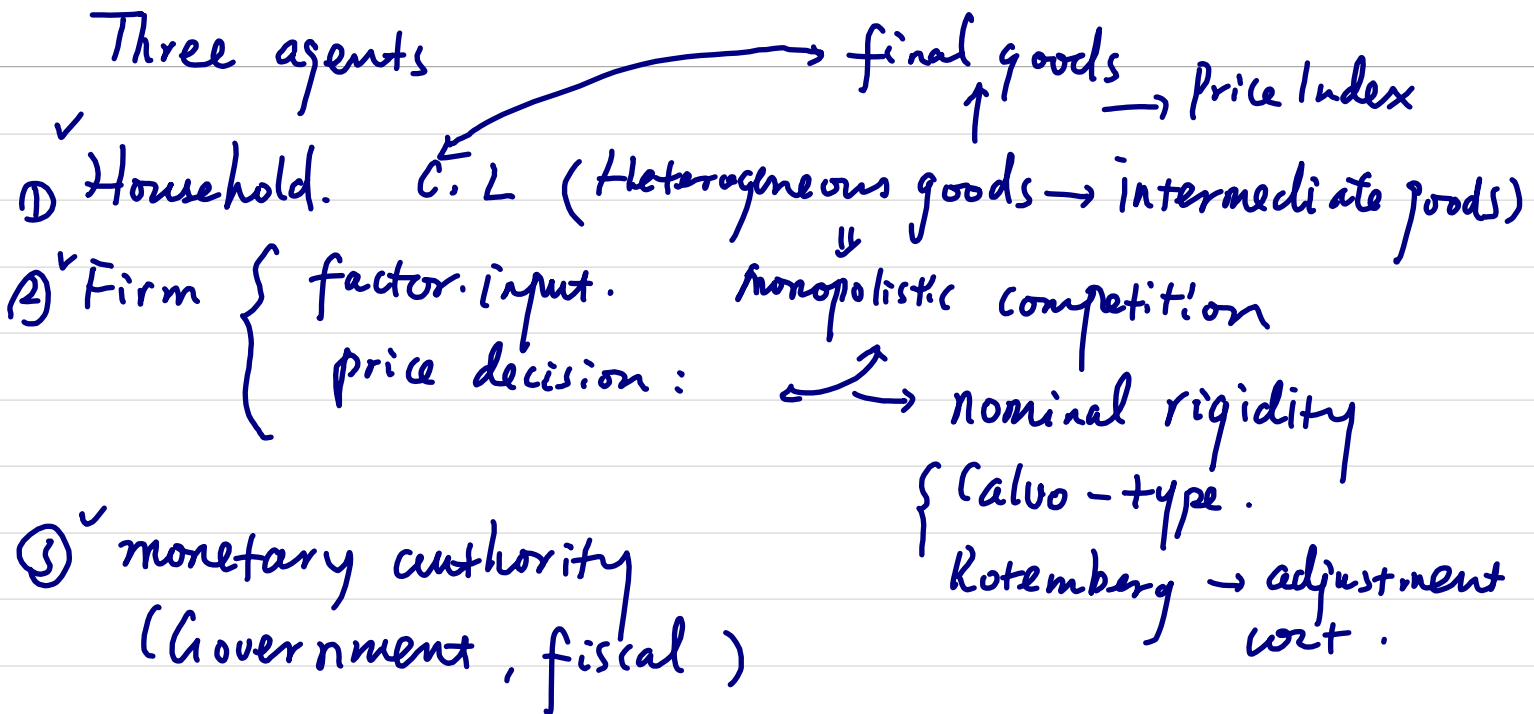 Three agents ↔ final goods → Price Index
✓ ① Household. C.L (Heterogeneous goods → intermediate goods)
✓ ② Firm { factor.input. monopolistic competition
price decision :
→ nominal rigidity
{ Calvo-type.
✓ ③ monetary authority
Rotemberg → adjustment
cost .
(Government, fiscal)